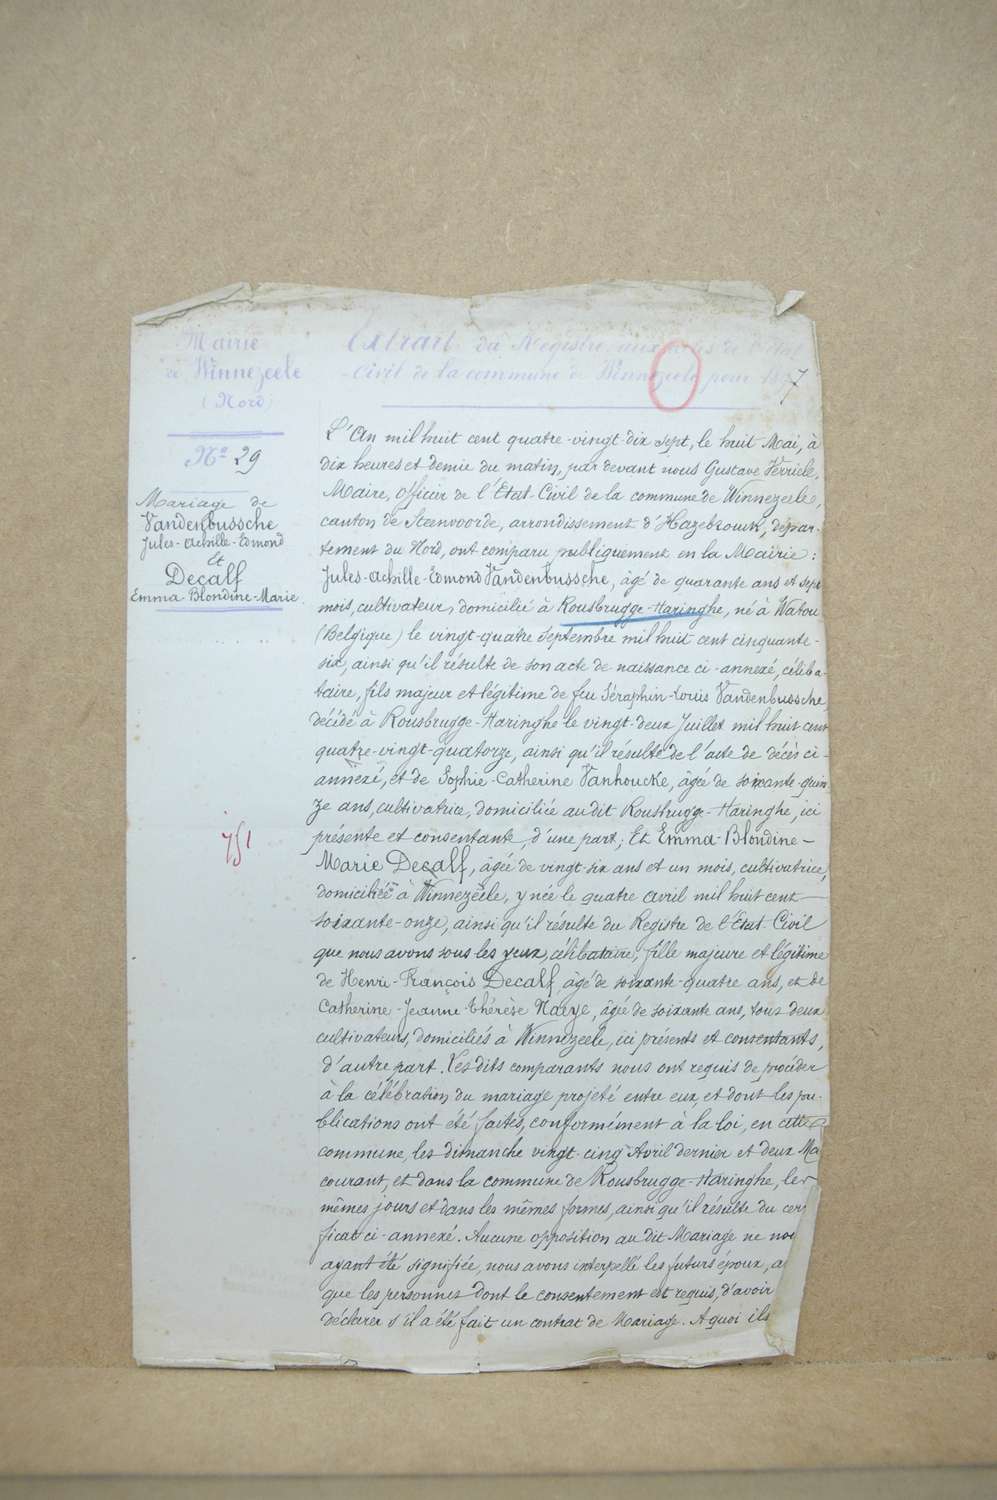 Mairie
de Winnezeele
(Nord)
Nº 29
Mariage de
Vandenbussche
Jules-Achille-Edmond
Et
Decalf
Emma-Blondine-Marie
751
Extrait du Registre aux actes de l'état
Civil de la commune de Winnezeele pour 1897
L'An mil huit cent quatre-vingt-dix sept, le huit Mai, à
dix heures et demie du matin, par devant nous Gustave Verriele,
Maire, officier de l'Etat-Civil de la commune de Winnezeele,
canton de Steenvoorde, arrondissement d'Hazebrouck, dépar-
tement du Nord, ont comparu publiquement en la Mairie :
Jules-Achille-Edmond Vandenbussche, âgé de quarante ans et sept
mois, cultivateur, domicilié à Rousbrugge-Haringhe, né à Watou
(Belgique) le vingt-quatre septembre mil huit cent cinquante-
six, ainsi qu'il résulte de son acte de naissance ci-annexé, céliba-
taire, fils majeur et légitime de feu Séraphin-Louis Vandenbussche,
décédé à Rousbrugge-Haringhe le vingt-deux Juillet mil huit cent
quatre-vingt-quatorze, ainsi qu'il résulte de l'acte de décès ci-
annexé, et de Sophie-Catherine Vanhoucke, âgée de soixante-quin-
ze ans, cultivatrice, domiciliée au dit Rousbrugge-Haringhe, ici
présente et consentante, d'une part; Et Emma-Blondine-
Marie Decalf, âgée de vingt-six ans et un mois, cultivatrice,
domiciliée à Winnezeele, y née le quatre avril mil huit cent
soixante-onze, ainsi qu'il résulte du Registre de l'Etat Civil
que nous avons sous les yeux, célibataire, fille majeure et légitime
de Henri-François Decalf âgé de soixante-quatre ans, et de
Catherine-Jeanne-Thérèse Naeye, âgée de soixante ans, tous deux
cultivateurs, domiciliés à Winnezeele, ici présents et consentants,
d'autre part. Les dits comparants nous ont requis de procéder
à la célébration du mariage projeté entre eux, et dont les pu-
blications ont été faites, conformément à la loi, en cette
commune, les dimanche vingt-cinq Avril dernier et deux Ma
courant, et dans la commune de Rousbrugge-Haringhe, les
mêmes jours et dans les mêmes formes, ainsi qu'il résulte du cer
ficat ci-annexé. Aucune opposition au dit Mariage ne nou
ayant été signifiée, nous avons interpellé les futurs époux, a
que les personnes dont le consentement est requis, d'avoir
déclarer s'il a été fait un contrat de Mariage. A quoi ils